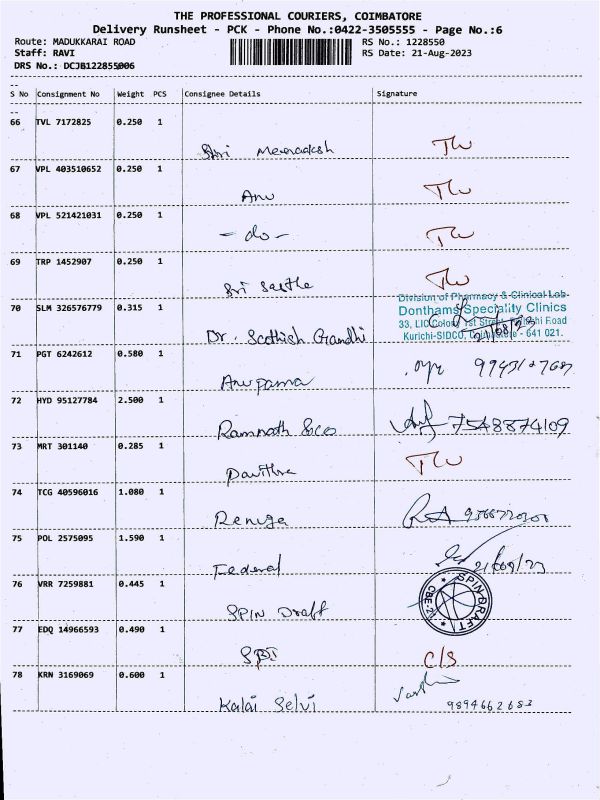 THE PROFESSIONAL COURIERS, COIMBATORE
Delivery Runsheet - PCK - Phone No.:0422-3505555 - Page No.:6
Route: MADUKKARAI ROAD RS No.: 1228550
Staff: RAVI RS Date: 21-Aug-2023
DRS No.: DCJB122855006
S No Consignment No Weight PCS Consignee Details Signature
66 TVL 7172825 0.250 1
Shri Meenakshi
67 VPL 403510652 0.250 1
Anu
68 VPL 521421031 0.250 1
- do -
69 TRP 1452907 0.250 1
Sri Sastha
Division of Pharmacy & Clinical Lab
70 SLM 326576779 0.315 1
Donthams Speciality Clinics
33, LIC Colony 1st Street, Road
Dr. Scothish Gandhi
Kurichi-SIDCO, Coimbatore - 641 021.
71 PGT 6242612 0.580 1
Anupama
72 HYD 95127784 2.500 1
Ramnath &co 7548874109
73 MRT 301140 0.285 1
Pavithra
74 TCG 40596016 1.080 1
Renuga
75 POL 2575095 1.590 1
Federal 21/08/23
76 VRR 7259881 0.445 1
SPIN Draft SPIN-DRAFT
77 EDQ 14966593 0.490 1
SBI C/S
78 KRN 3169069 0.600 1
Kalai Selvi 9894662683